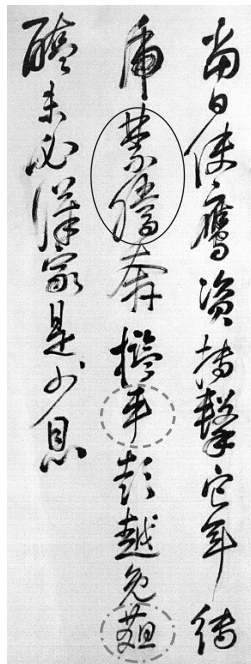 當日使鷹資搏擊它年縛
虎禁騰奔檻車彭越免菹
醢未必漢家是少恩